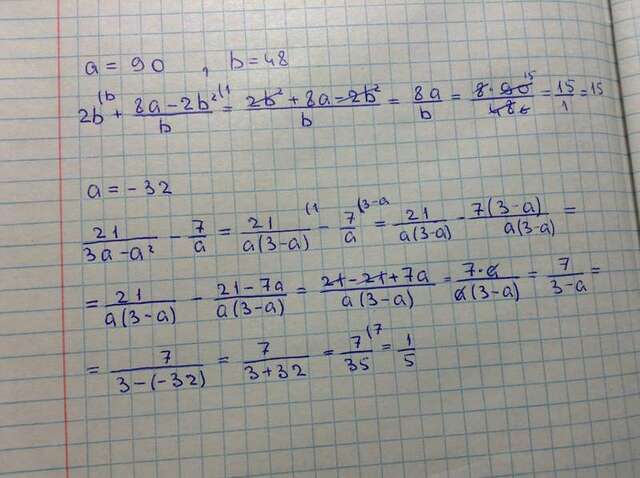 a = 90 , b = 48
2b^(b + (8a - 2b²)/b^(1 = (2b² + 8a - 2b²)/b = 8a/b = (8 · 90^15)/48₆ = 15/1 = 15
a = -32
21/(3a - a²) - 7/a = 21/(a(3-a))^(1 - 7/a^(3-a = 21/(a(3-a)) - 7(3-a)/(a(3-a)) =
= 21/(a(3-a)) - (21-7a)/(a(3-a)) = (21-21+7a)/(a(3-a)) = (7·a)/(a(3-a)) = 7/(3-a) =
= 7/(3-(-32)) = 7/(3+32) = 7/35^(7 = 1/5